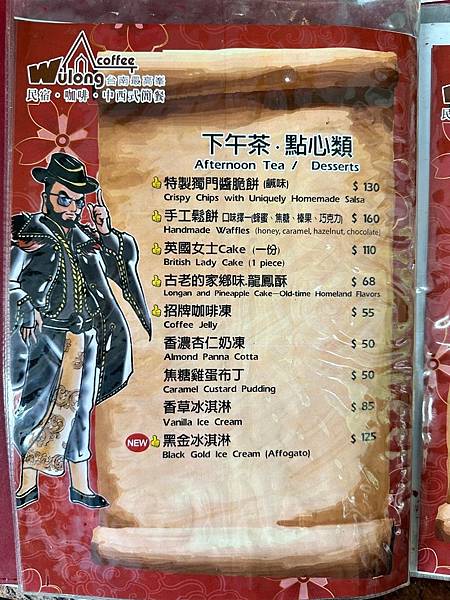 Wulong coffee
台南最高峯
民宿・咖啡・中西式簡餐
下午茶・點心類
Afternoon Tea / Desserts
特製獨門醬脆餅 (鹹味) $ 130
Crispy Chips with Uniquely Homemade Salsa
手工鬆餅 口味擇一(蜂蜜、焦糖、榛果、巧克力) $ 160
Handmade Waffles (honey, caramel, hazelnut, chocolate)
英國女士Cake (一份) $ 110
British Lady Cake (1 piece)
古老的家鄉味.龍鳳酥 $ 68
Longan and Pineapple Cake—Old-time Homeland Flavors
招牌咖啡凍 $ 55
Coffee Jelly
香濃杏仁奶凍 $ 50
Almond Panna Cotta
焦糖雞蛋布丁 $ 50
Caramel Custard Pudding
香草冰淇淋 $ 85
Vanilla Ice Cream
NEW 黑金冰淇淋 $ 125
Black Gold Ice Cream (Affogato)